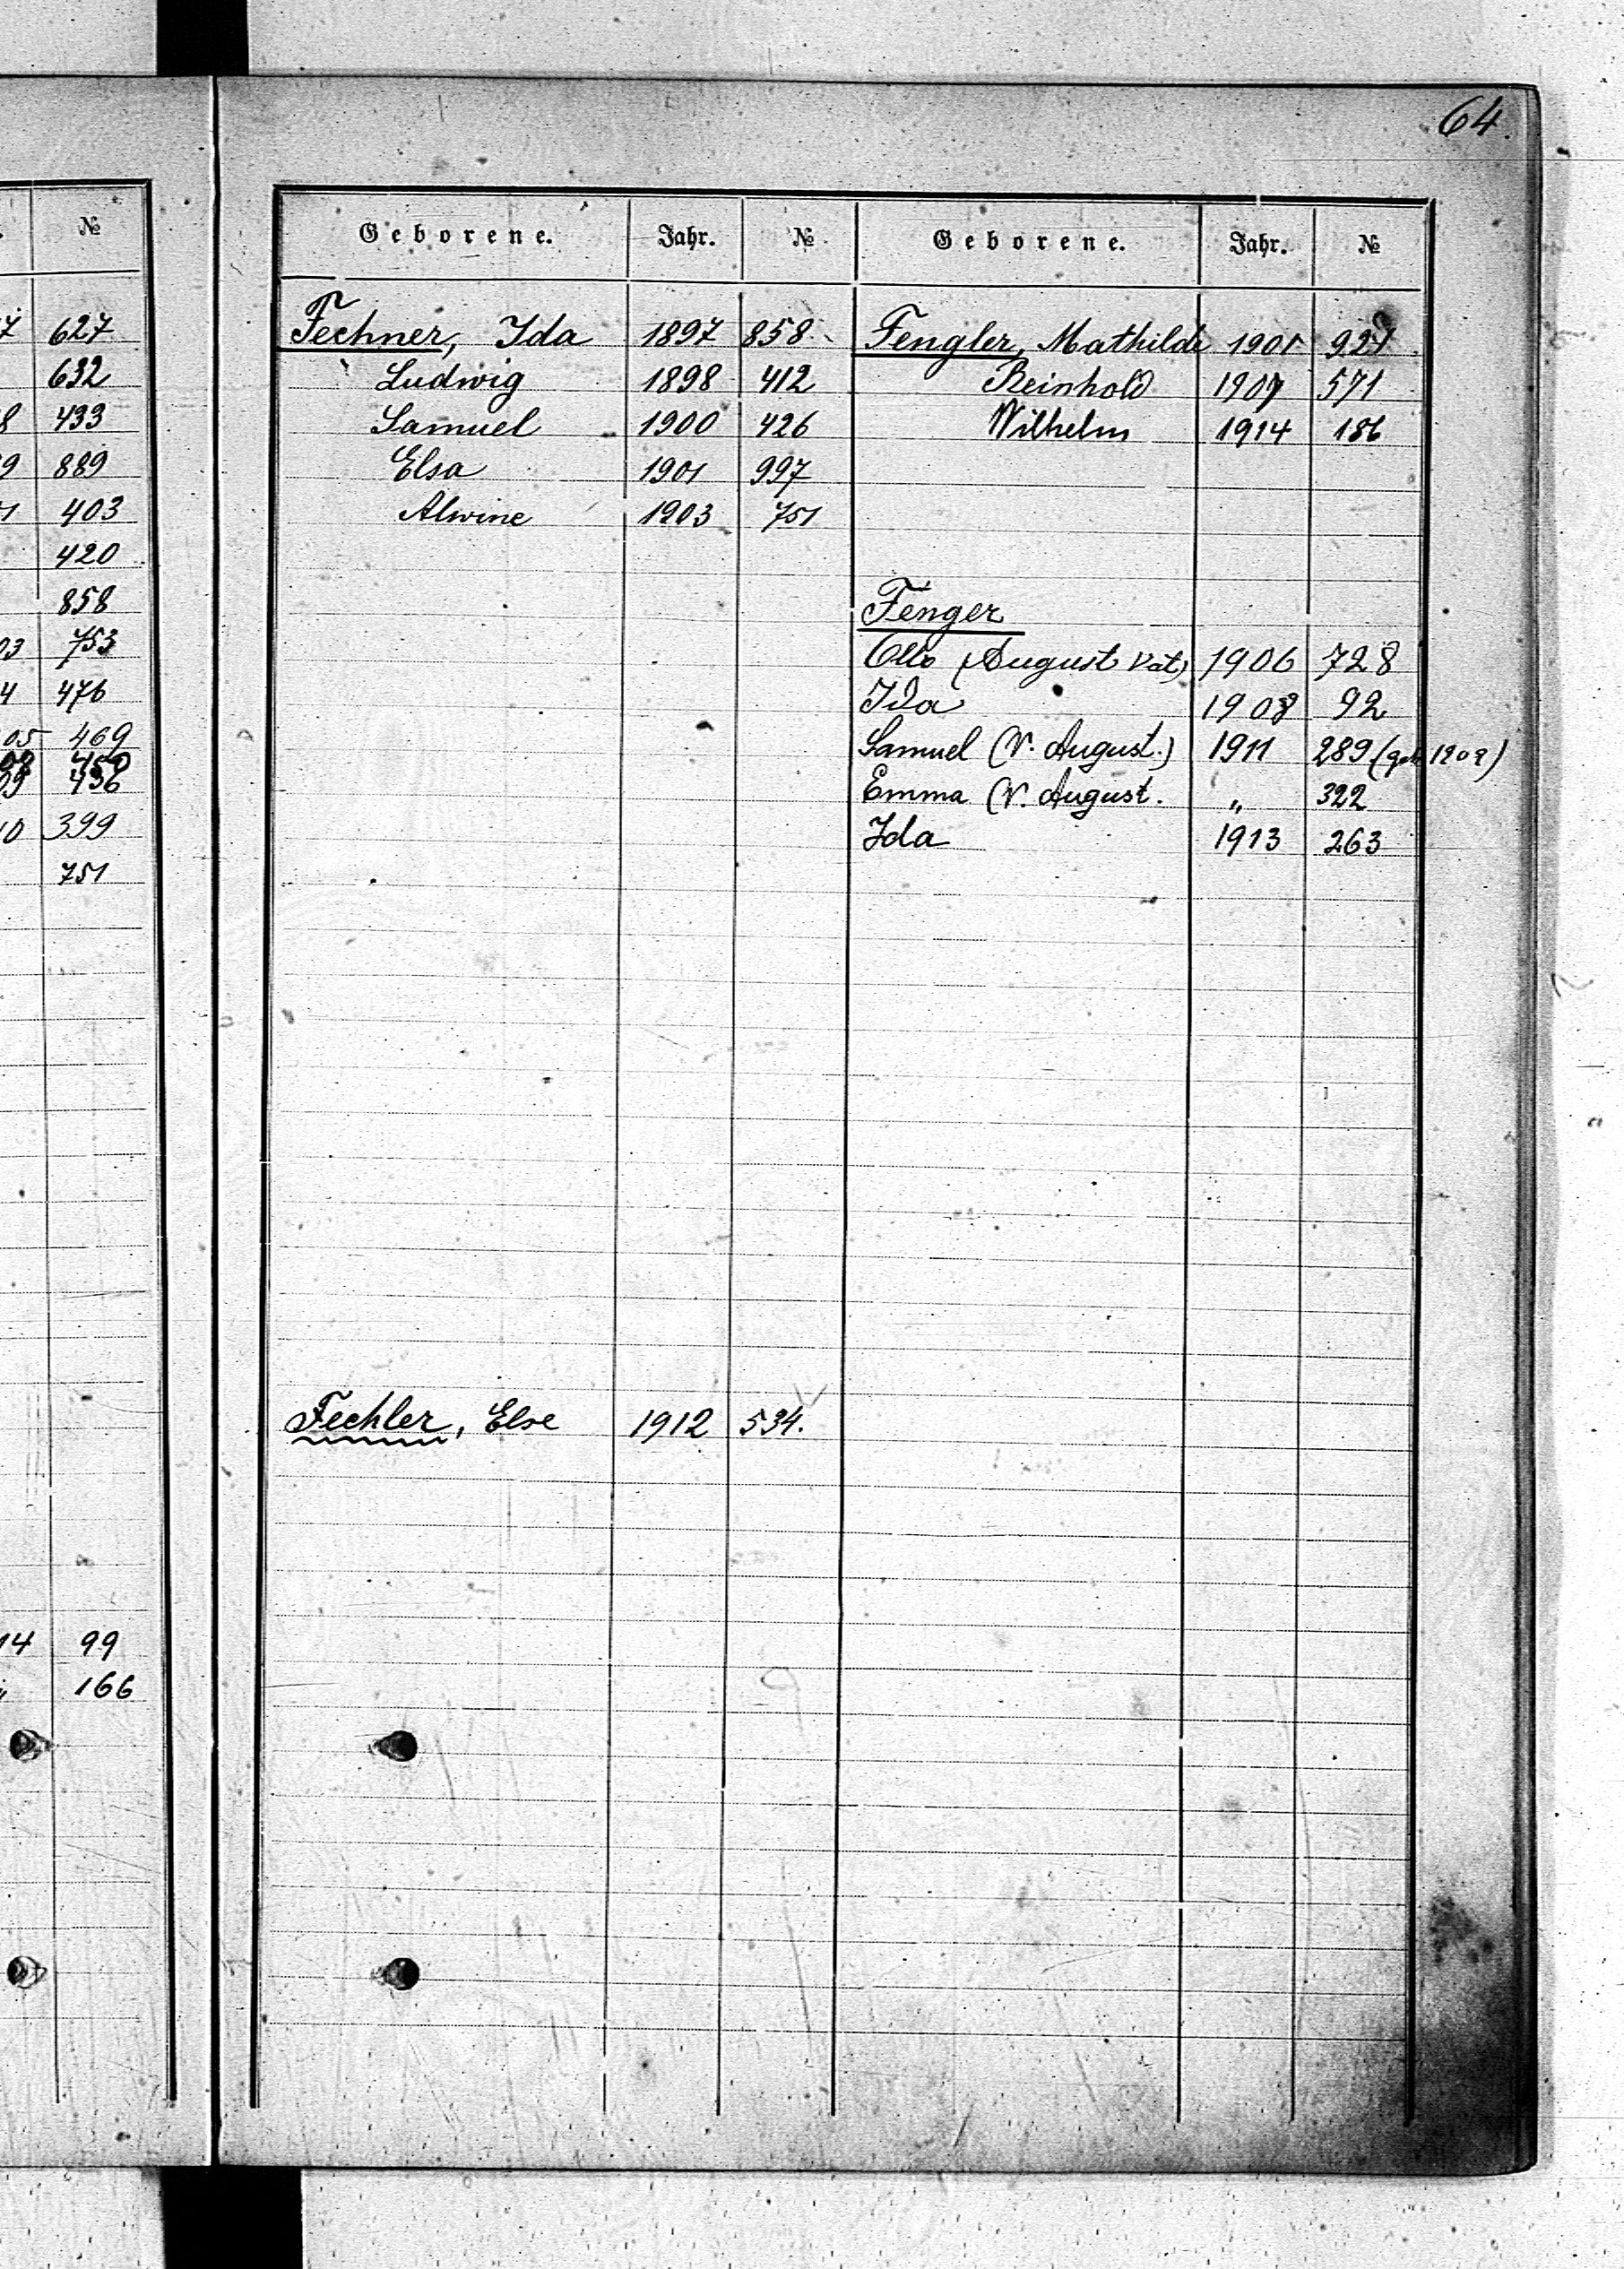 64.
№
627
632
433
889
403
420
858
753
476
05 469
450
436
399
751
14 99
166
Geborene. Jahr. №
Fechner, Ida 1897 858
Ludwig 1898 412
Samuel 1900 426
Elsa 1901 997
Alwine 1903 751
Fechler, Else 1912 534.
Geborene. Jahr. №
Fengler, Mathilde 1901
Reinhold 1907 571
Wilhelm 1914 186
Fenger
Otto (August Vat) 1906 728
Ida 1908 92
Samuel (V. August.) 1911 289 (geb 1909)
Emma (V. August. " 322
Ida 1913 263